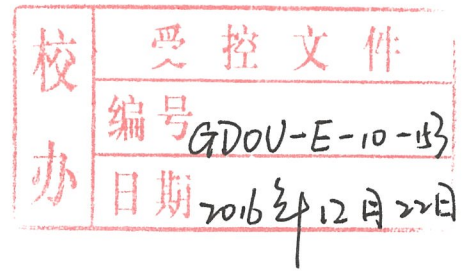 校办
受控文件
编号 GDOU-E-10-153
日期 2016年12月22日